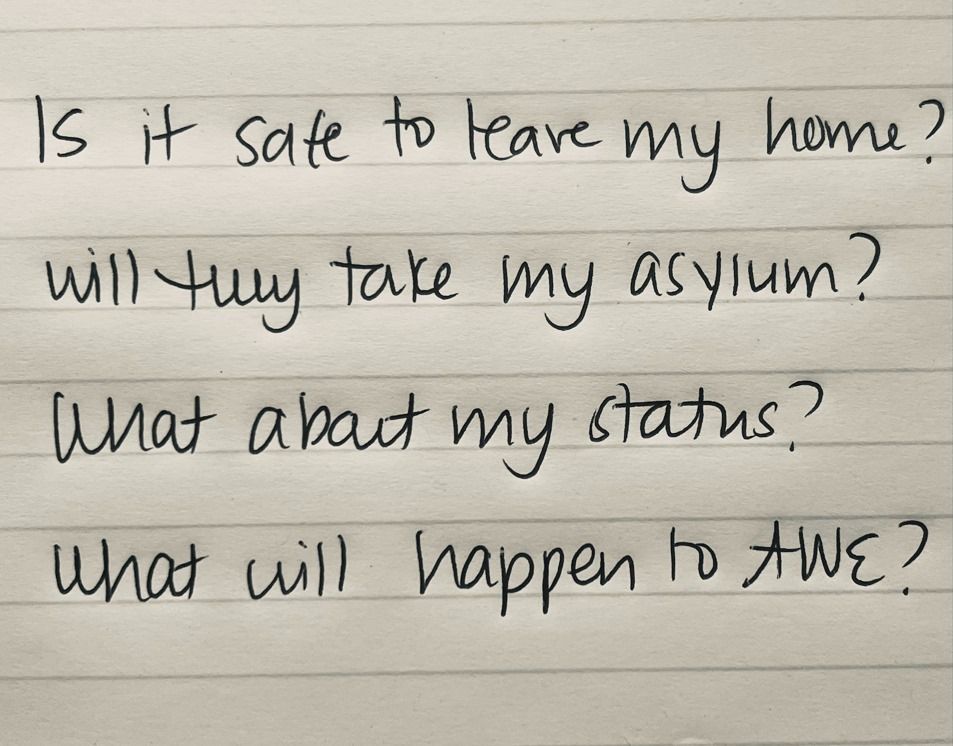 Is it safe to leave my home?
will they take my asylum?
What about my status?
What will happen to AWE?